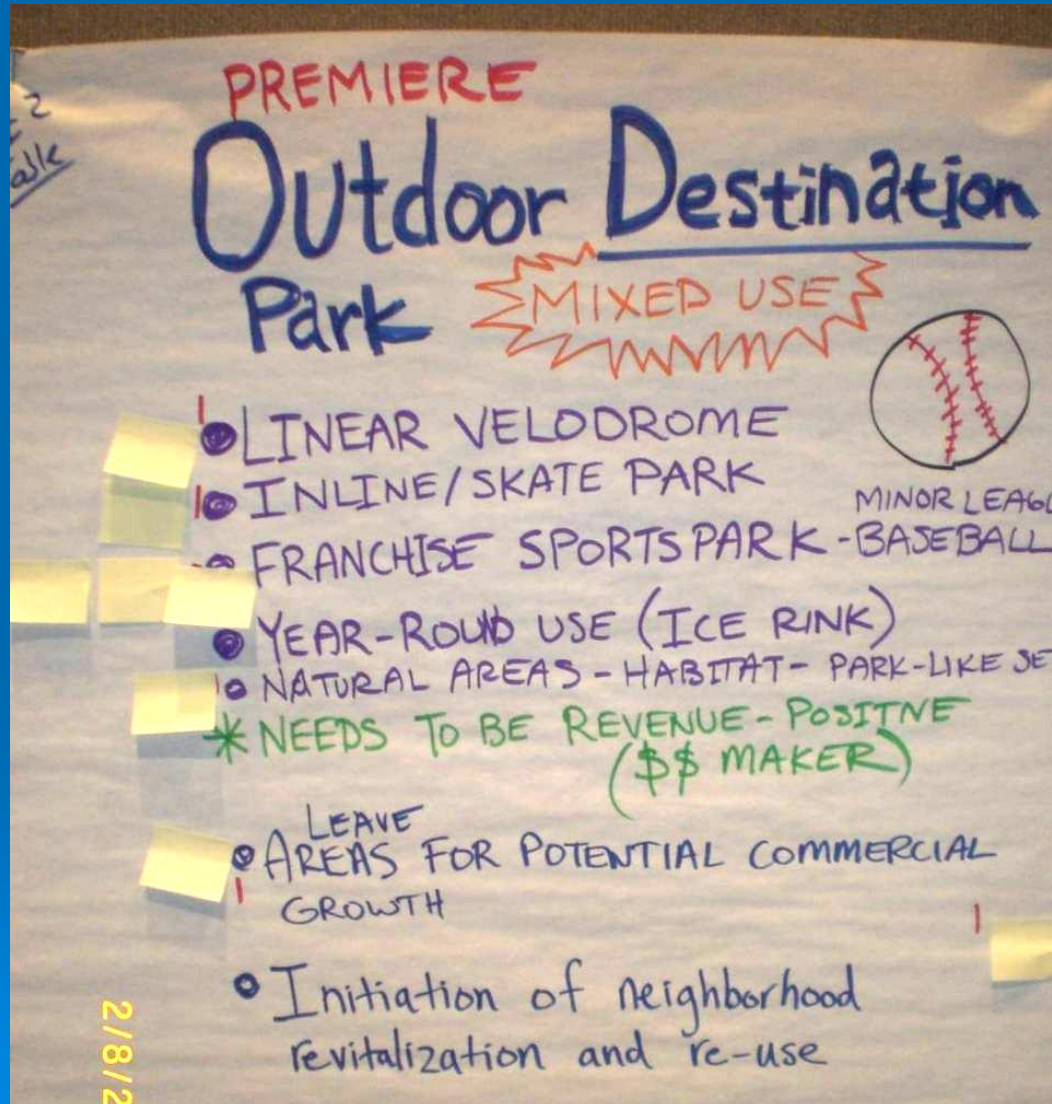 PREMIERE
Outdoor Destination
Park
MIXED USE
LINEAR VELODROME
INLINE/SKATE PARK
MINOR
FRANCHISE SPORTS PARK - BASEBALL
YEAR-ROUND USE (ICE RINK)
NATURAL AREAS - HABITAT - PARK-LIKE
* NEEDS TO BE REVENUE-POSITIVE
($$ MAKER)
LEAVE
AREAS FOR POTENTIAL COMMERCIAL
GROWTH
Initiation of neighborhood
revitalization and re-use
2/8/2